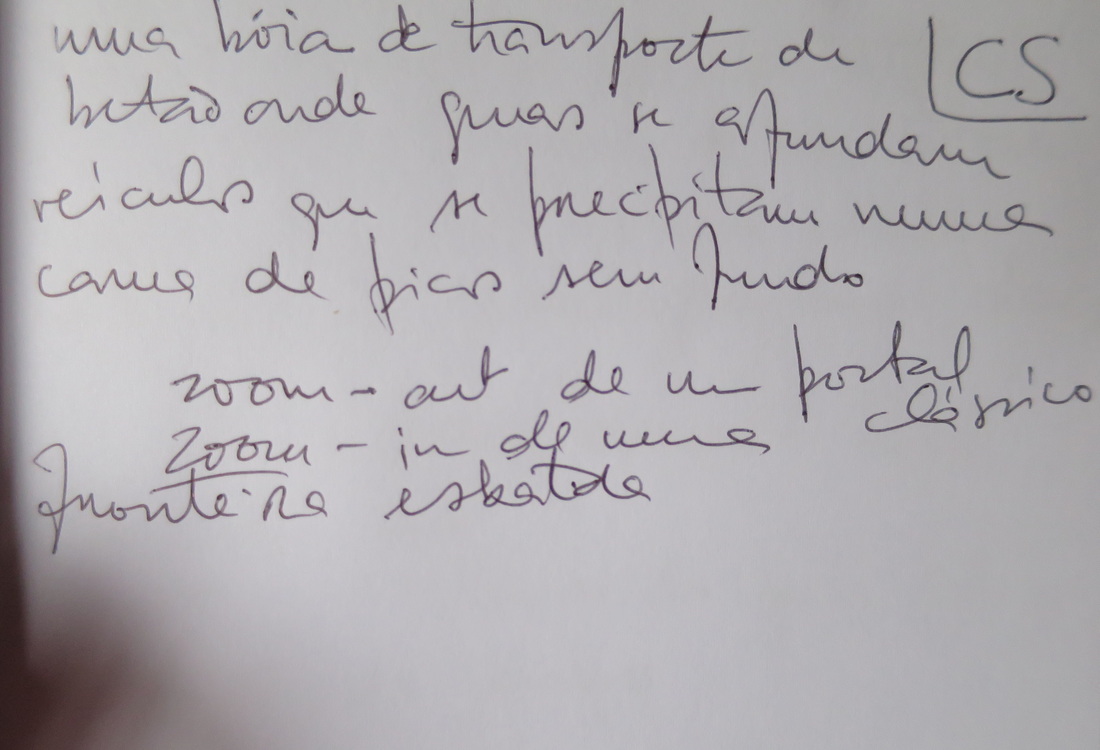 uma bóia de transporte de
CS
betão onde quase se afundam
veículos que se precipitam numa
cama de picos sem fundo
zoom-out de um portal
clássico
zoom-in de uma
fronteira esbatida